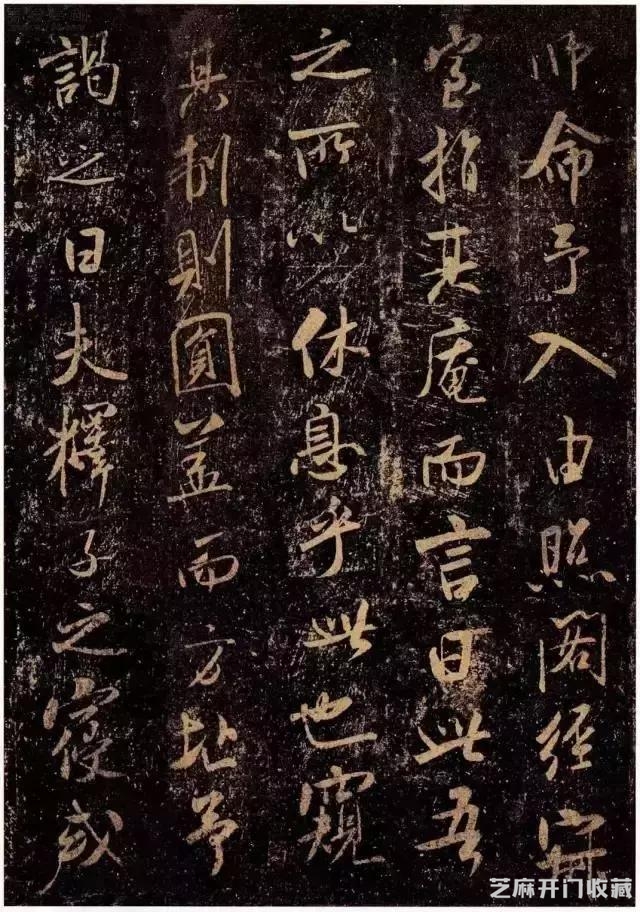 师命予入由照閣經寂
室指其庵而言曰此吾
之所以休息乎此也窺
其制則圓盖而方址予
謁之曰夫釋子之寢或
芝麻开门收藏